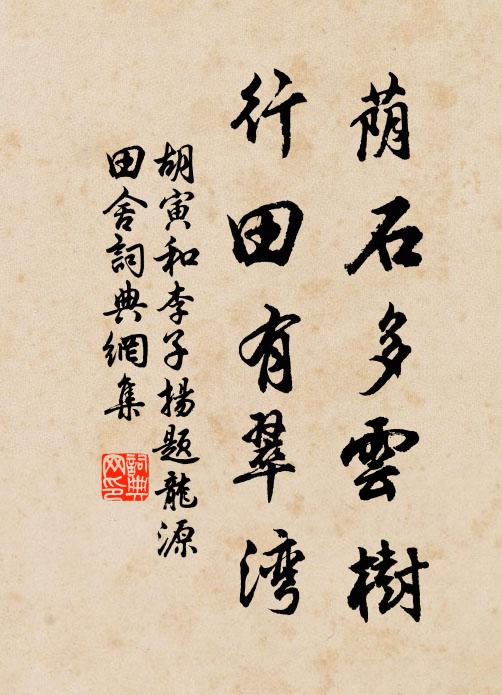 荫石多雲樹
行田有翠湾
胡寅和李子揚題龍源
田舍詞典網集
詞典
网印